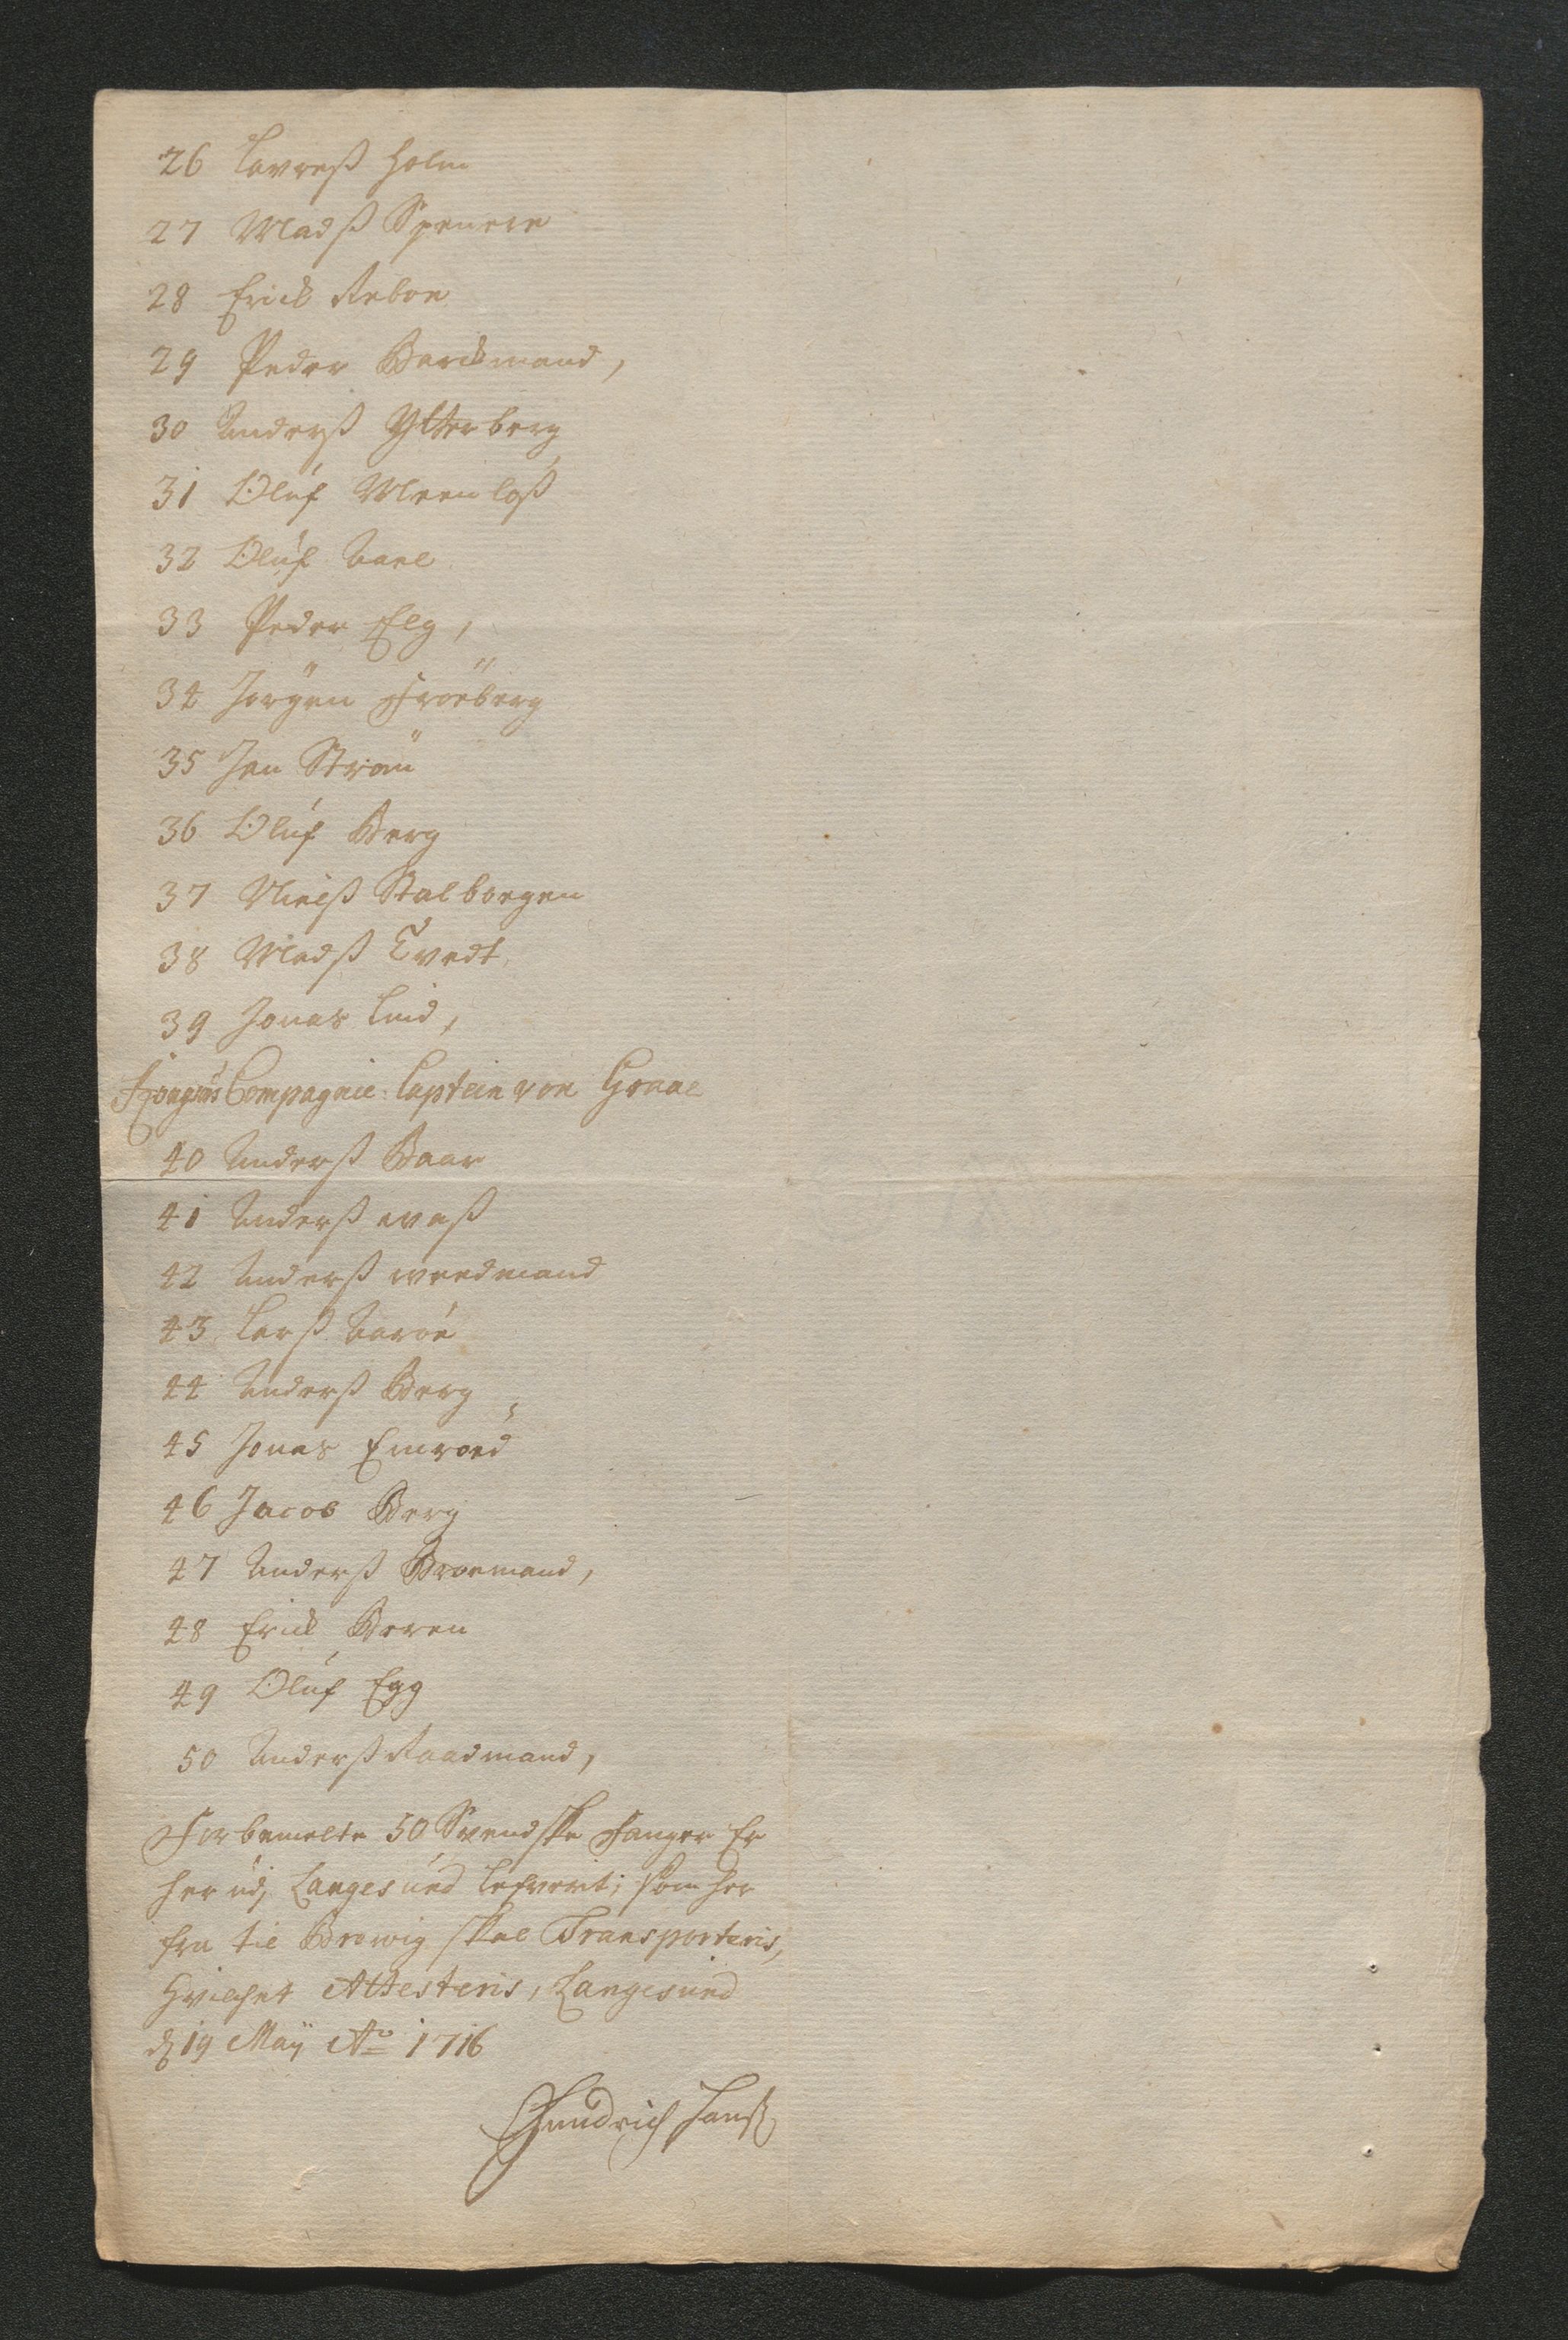 26 Lavrsß Holm
27 Madß Spenere
28 Erick Reboe
29 Peder Barckmand,
30 Anderß Ytterberg
31 Oluf Meenloß
32 Oluf Aare
33 Peder Elg,
34 Jørgen Froëberg
35 Jan Strøm
36 Oluf Berg
37 Nielß Stalborgen
38 Madß Tvedt
39 Jonas Lind,
Compagnie Captein von Graae
40 Anderß Baar
41 Anderß
42 Anderß wredmand
43 Larß Aaröe
44 Anderß Berg
45 Jonas Emroed
46 Jacob Berg
47 Anderß Broemand,
48 Erick Beren
49 Oluf Egg
50 Anderß Raadmand,
Forbemelte 50 Svendske Fanger Er
her udj Langesund lefverit; som her
fra til Brewig skal Transporteris,
Hvilchet Attesteris, Langesund
d 19 Maij Ao 1716
Hendrich Hanß